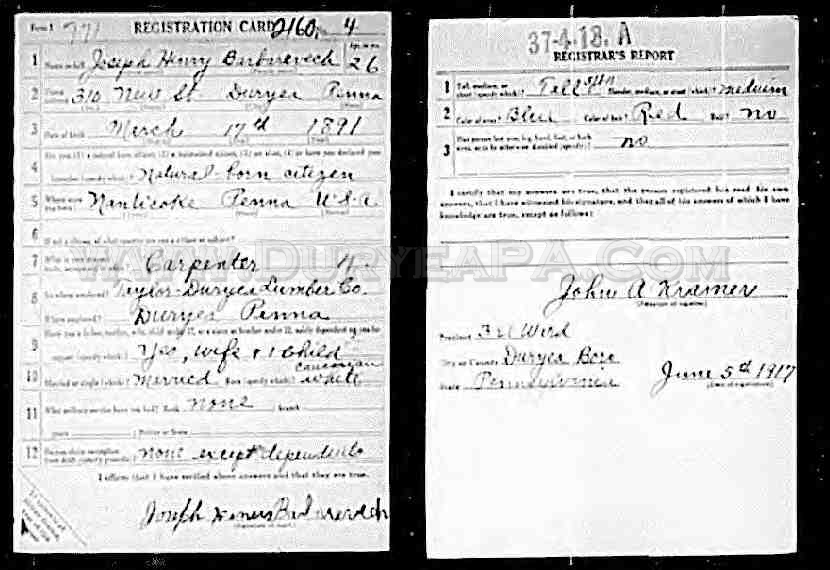 Form 1 771 REGISTRATION CARD 2160 No. 4
1 Name in full Joseph Henry Age, in yrs. 26
2 310 New St. Duryea Penna
3 Date of birth March 17th 1891
4 Are you (1) a natural born citizen, (2) a naturalized citizen, (3) an alien, (4) or have you declared your
intention (specify which)? Natural born citizen
5 Where were you born? Nanticoke Penna U.S.A.
6 If not a citizen, of what country are you a citizen or subject?
7 What is your present trade, occupation, or office? Carpenter 4
8 By whom employed? Taylor-Duryea Lumber Co.
Where employed? Duryea Penna
9 Have you a father, mother, wife, child under 12, or a sister or brother under 12, solely dependent on you for
support (specify which)? Yes, wife + 1 child
caucasian
10 Married or single (which)? Married Race (specify which)? white
11 What military service have you had? Rank none branch
years Nation or State
12 Do you claim exemption from draft (specify grounds)? none except dependents
I affirm that I have verified above answers and that they are true.
Joseph
37-4-18. A
REGISTRAR'S REPORT
1 Tall, medium, or short (specify which)? Tall Slender, medium, or stout (which)? medium
2 Color of eyes? Blue Color of hair? Red Bald? no
3 Has person lost arm, leg, hand, foot, or both eyes, or is he otherwise disabled (specify)? no
I certify that my answers are true, that the person registered has read his own
answers, that I have witnessed his signature, and that all of his answers of which I
have knowledge are true, except as follows:
WWW.DURYEAPA.COM
John A Kramer
(Signature of registrar)
Precinct 3rd Ward
City or County Duryea Boro
State Pennsylvania June 5th 1917
(Date of registration)